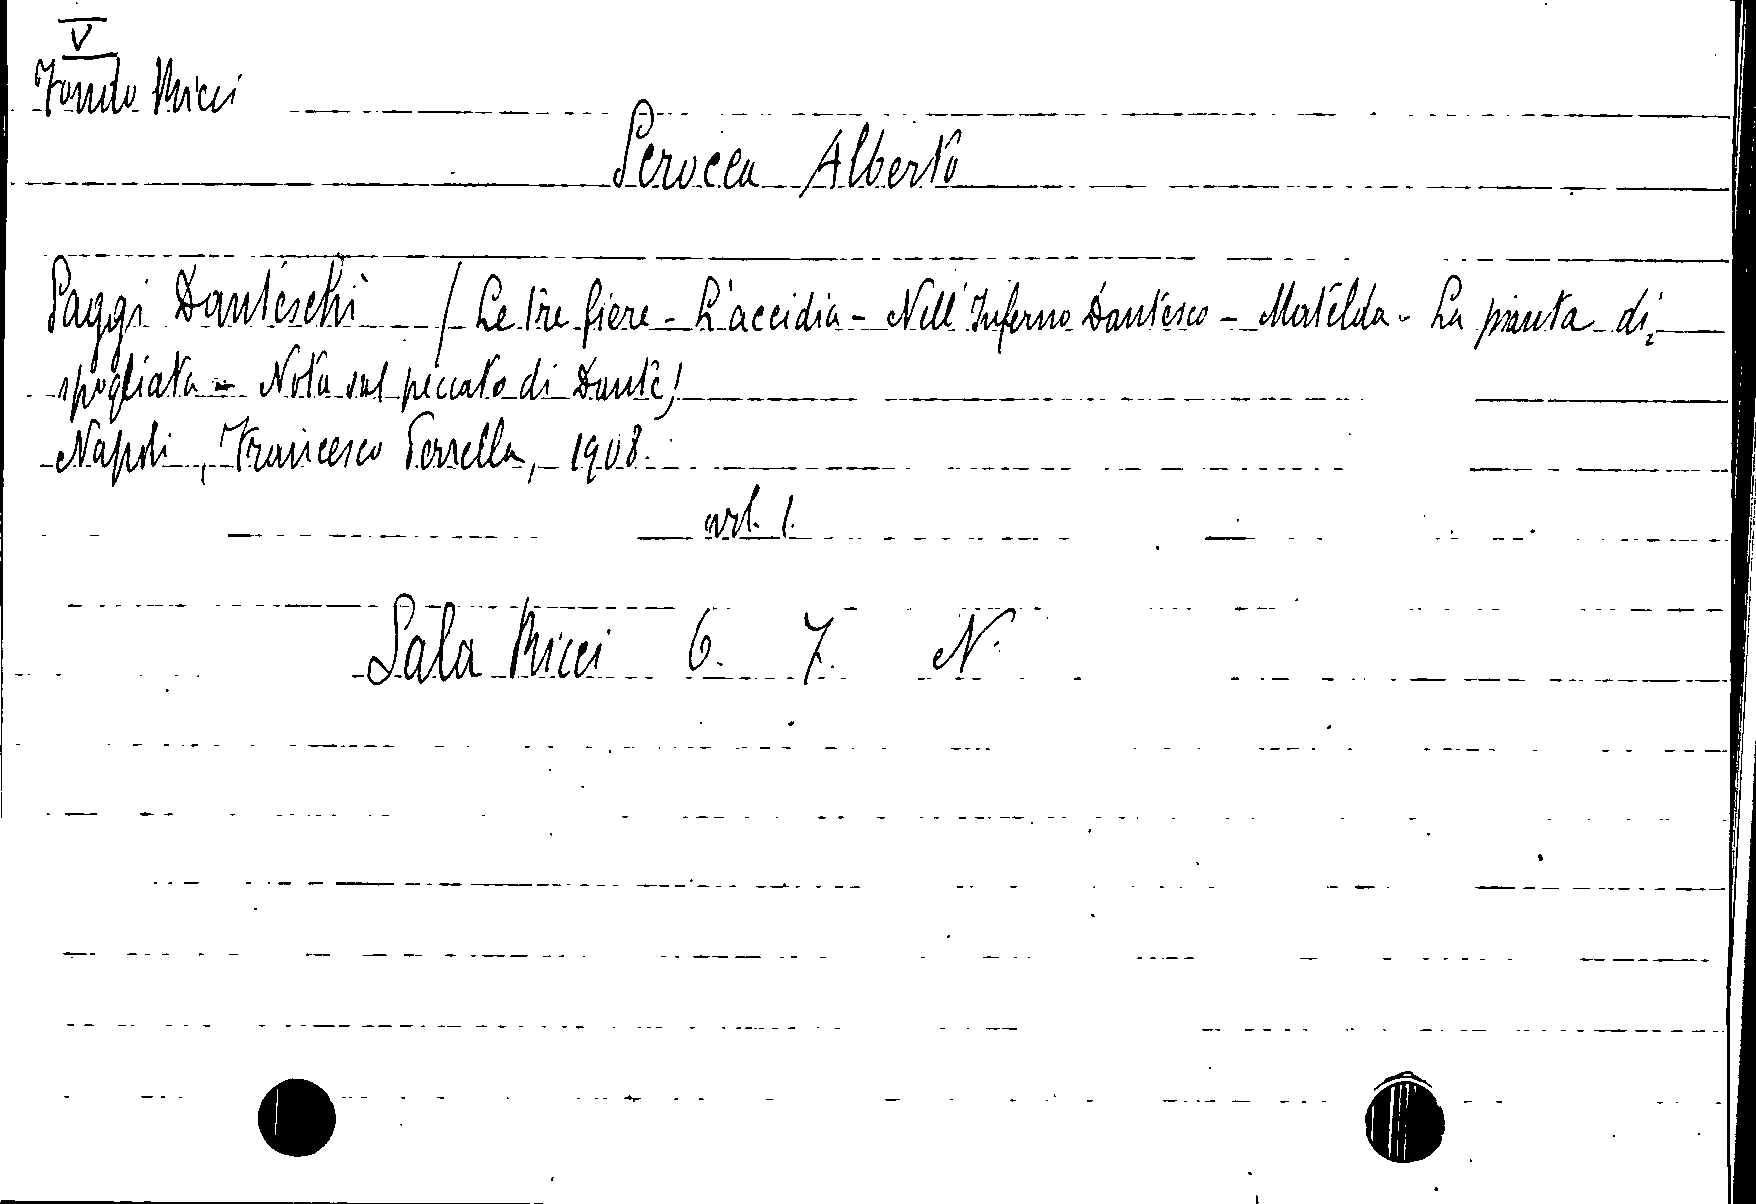 V
Fondo Ricci
Scrocca Alberto
Saggi Danteschi (Le tre fiere - L'accidia - Nell'Inferno Dantesco - Matelda - La pianta di=
spogliata - Nota sul peccato di Dante)
Napoli, Francesco Perrella, 1908.
vol. 1.
Sala Ricci 6. 7. N.